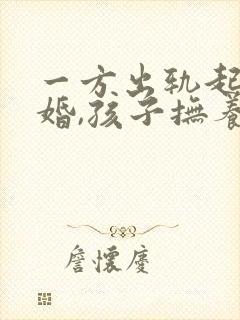 一方出轨起
婚,孩子撫養
詹懷慶